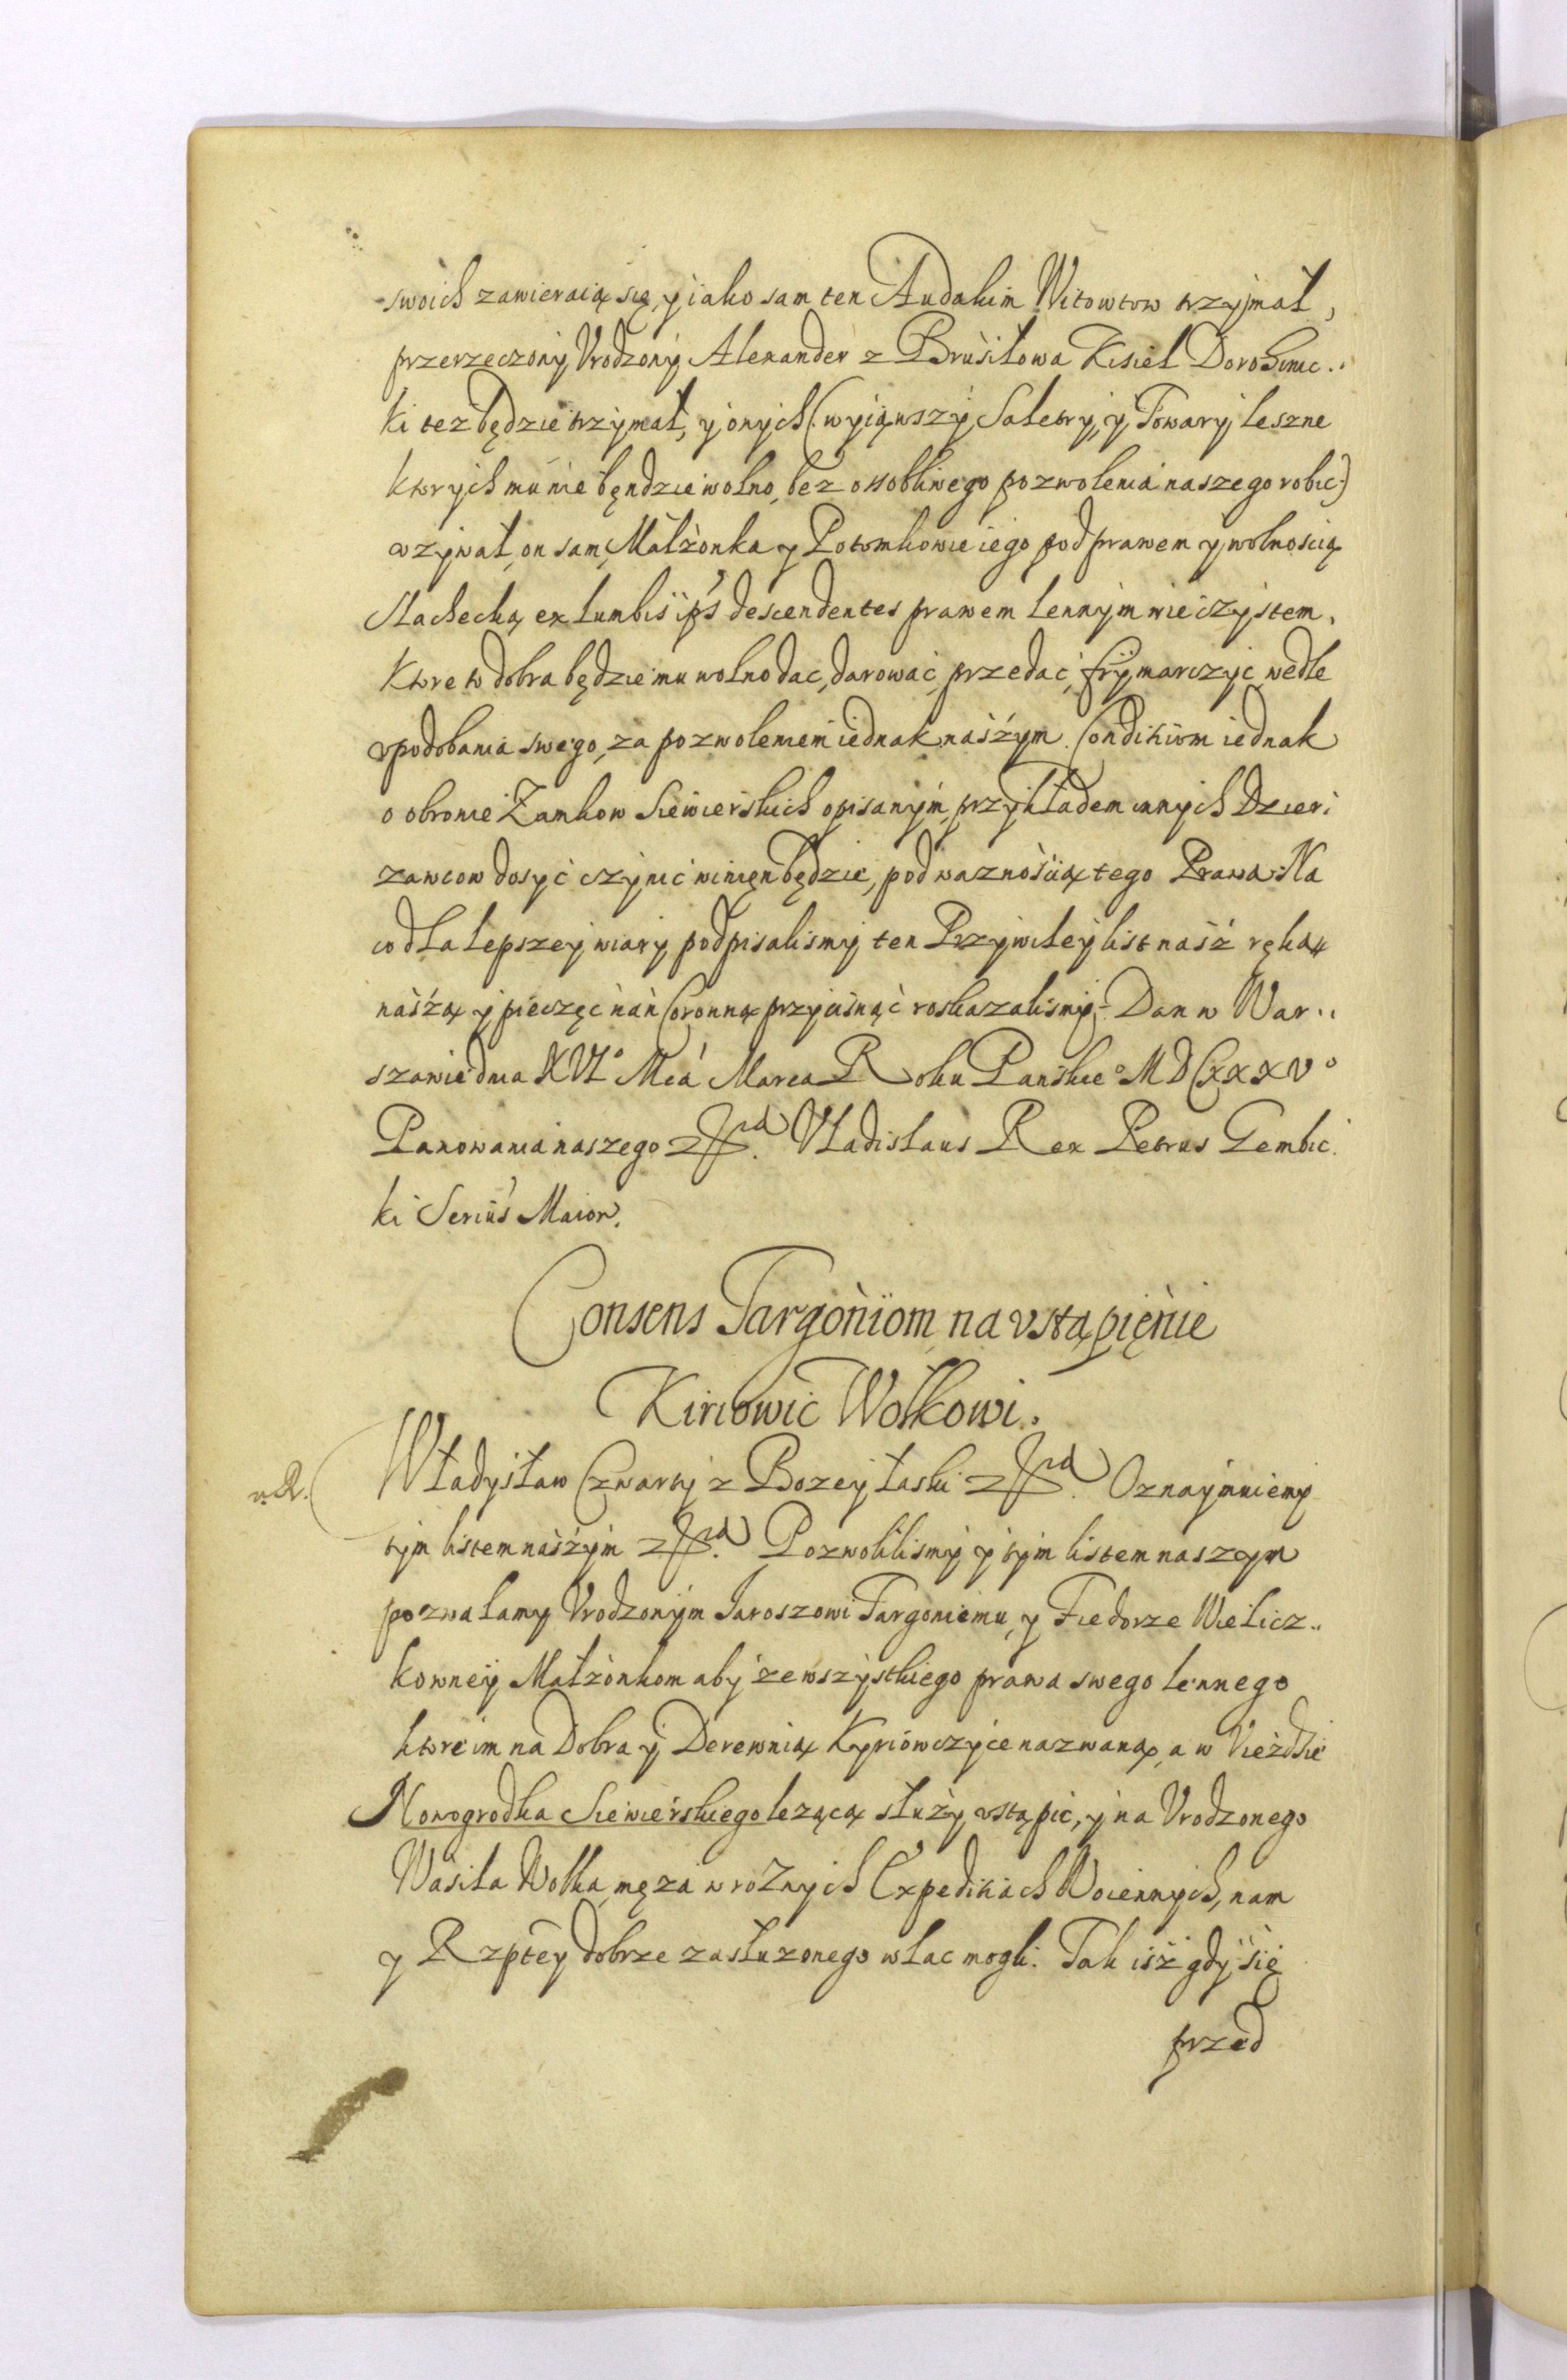 swoich zawieraią się, y iako sam ten Audakim Witowtow trzymał,
przerzeczony Vrodzony Alexander z Brusiłowa Kisiel Dorohinic..
ki tez będzie trzymał, y onych (: wyiąwszy Saletry, y Towary leszne
ktorych mu nie bęndzie wolno, bez ossobliwego pozwolenia naszego robic:)
vzywał, on sam, Małzonka y Potomkowie iego pod prawem y wolnoscią
Slachecką, ex lumbis ip's descendentes prawem lennym wieczystem.
Ktore to dobra będzie mu wolno dac, darowac, przedac, frymarczyc, wedle
vpodobania swego, za pozwoleniem iednak naszym. Conditiom iednak
o obronie Zamkow Siewierskich opisanym, przykładem innych Dzier:
zawcow dosyc czynic winien będzie, pod waznoscią tego Prawa. Na
co dla lepszey wiary podpisalismy ten Przywiley list nasz ręką
naszą y pieczęc nan Coronną przycisnąc roskazalismy. Dan w War..
szawie dnia XVI° Mca Marca Roku Panskie° MDCXXXV°
Panowania naszego etc. Vladislaus Rex Petrus Gembic.
ki Serius Maior.
Consens Targoniom na vstąpięnie
Kiriowic Wołkowi.
Władysław Czwarty z Bozey łaski etc. Oznaymuiemy
tym listem naszym etc. Pozwolilismy y tym listem naszym
pozwalamy Vrodzonym Jaroszowi Targoniemu, y Fiedorze Wielicz..
kowney Małzonkom aby ze wszystkiego prawa swego lennego
ktore im na Dobra y Derewnią Kyriowczyce nazwaną, a w Vieżdzie
Nowogrodka Siewierskiego lezącą słuzy vstąpic, y na Vrodzonego
Wasila Wołka, męza w roznych Expeditiach Woiennych, nam
y Rzptey dobrze zasłuzonego wlac mogli. Tak isz gdy się
przed